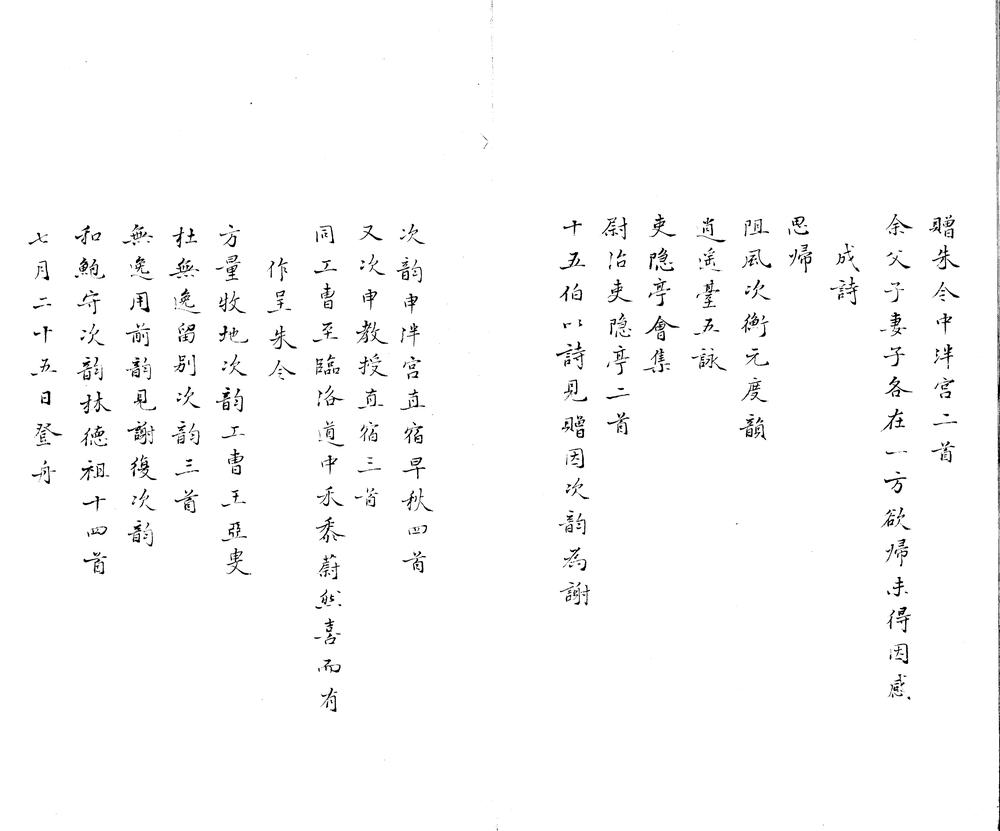 贈朱令中泮宮二首
余父子妻子各在一方欲歸未得因感
成詩
思歸
阻風次衡元度韻
逍遥臺五詠
吏隐亭會集
尉治吏隐亭二首
十五伯以詩見贈因次韵為謝
次韵申泮宮直宿早秋四首
又次申教授直宿三首
同工曹至臨洺道中禾黍蔚然喜而有
作呈朱令
方量牧地次韵工曹王亞叟
杜無逸留别次韵三首
無逸用前韵見謝復次韵
和鮑守次韵林德祖十四首
七月二十五日登舟